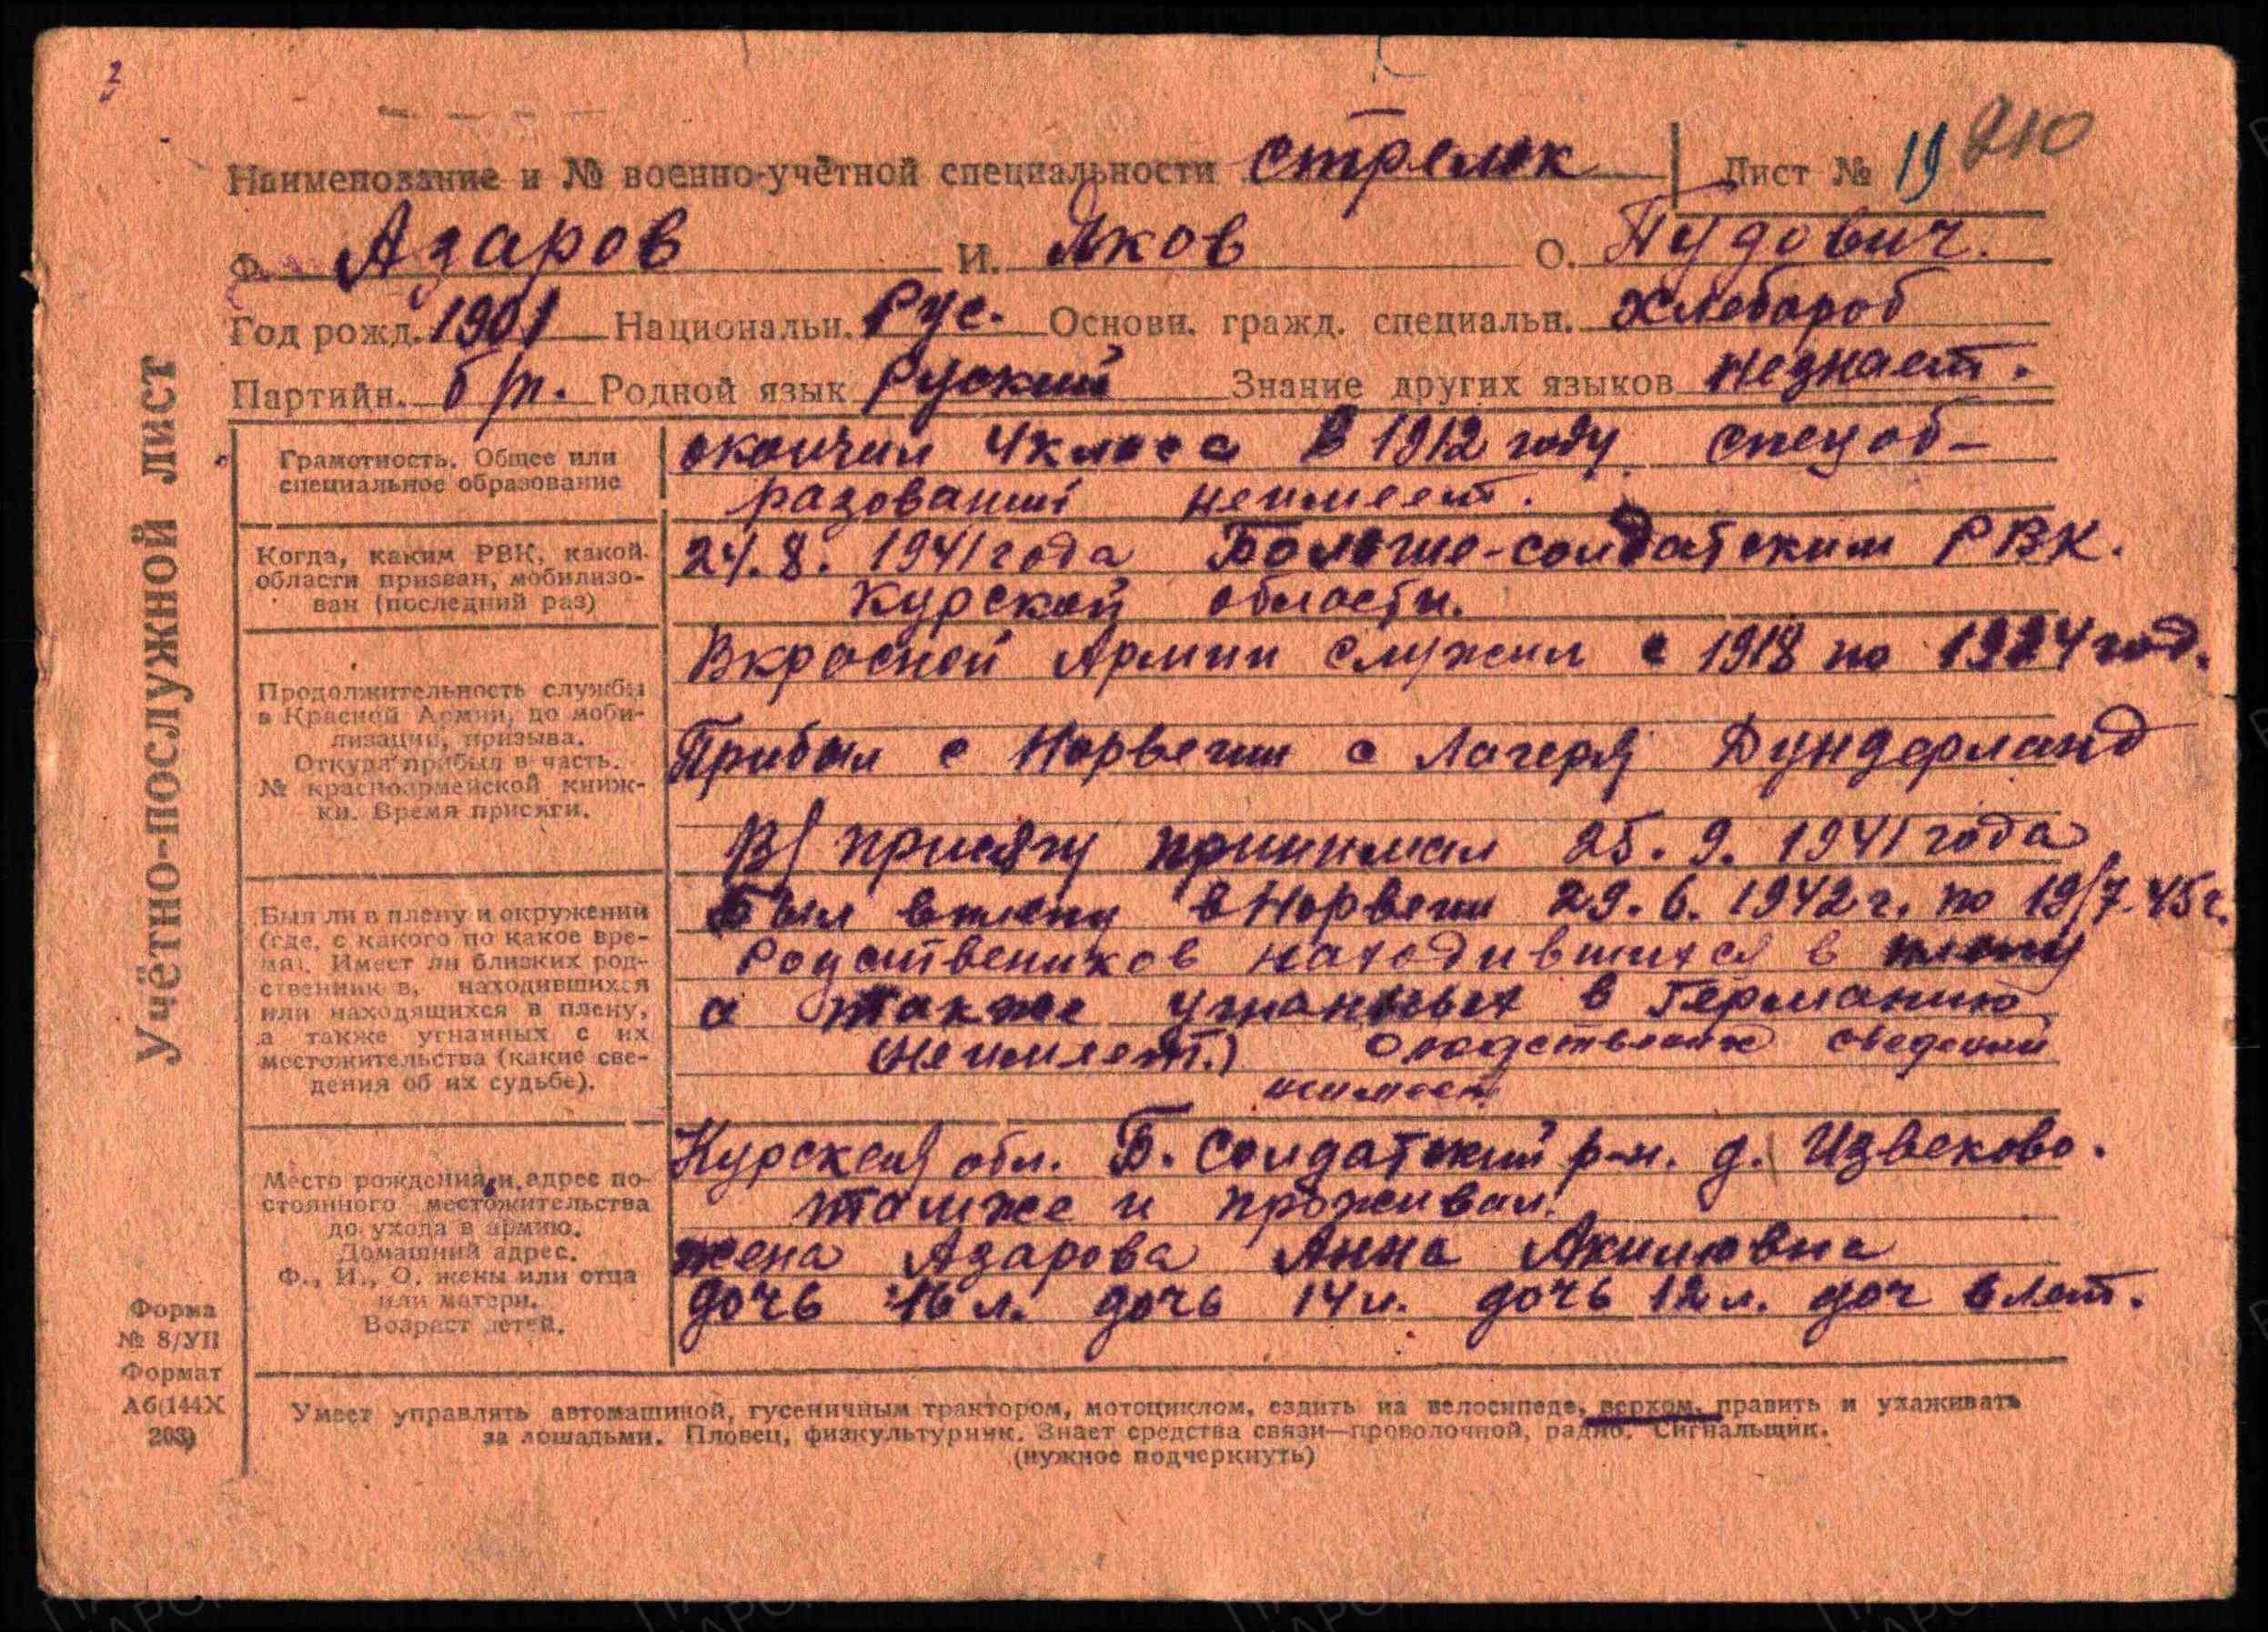 2
Наименование и № военно-учётной специальности стрелок Лист № 19 210
Ф. Азаров И. Яков О. Пудович.
Год рожд. 1901 Национальн. Рус. Основн. гражд. специальн. Хлебароб
Партийн. б/п. Родной язык Руский Знание других языков незнает.
Учётно-послужной лист
Грамотность. Общее или
специальное образование
окончил 4 класса В 1912 году спецоб-
разований неимеет.
Когда, каким РВК, какой
области призван, мобилизо-
ван (последний раз)
24.8. 1941 года Больше-солдатским РВК.
Курской области.
Продолжительность службы
в Красной Армии, до моби-
лизации, призыва.
Откуда прибыл в часть.
№ красноармейской книж-
ки. Время присяги.
Вкрасной Армии служил с 1918 по 1924 год.
Прибыл с Норвегии с Лагеря Дундерланд
В/присягу принимал 25.9.1941 года
Был ли в плену и окружении
(где, с какого по какое вре-
мя). Имеет ли близких род-
ственников, находившихся
или находящихся в плену,
а также угнанных с их
местожительства (какие све-
дения об их судьбе).
Был вплену в Норвегии 29.6.1942 г. по 19/7.45 г.
Родствеников находившихся в плену
а также угнанных в Германию
(неимеет.) сведений
неимеет
Место рождения и адрес по-
стоянного местожительства
до ухода в армию.
Домашний адрес.
Ф., И., О. жены или отца
или матери.
Возраст детей.
Курская обл. Б. Солдатский р-н. д. Извеково.
тамже и проживал.
жена Азарова Анна Акимовна
дочь 16 л. дочь 14 л. дочь 12 л. доч 6 лет.
Форма
№ 8/УП
Формат
А6(144Х
203)
Умеет управлять автомашиной, гусеничным трактором, мотоциклом, ездить на велосипеде, верхом, править и ухаживать
за лошадьми. Пловец, физкультурник. Знает средства связи—проволочной, радио. Сигнальщик.
(нужное подчеркнуть)